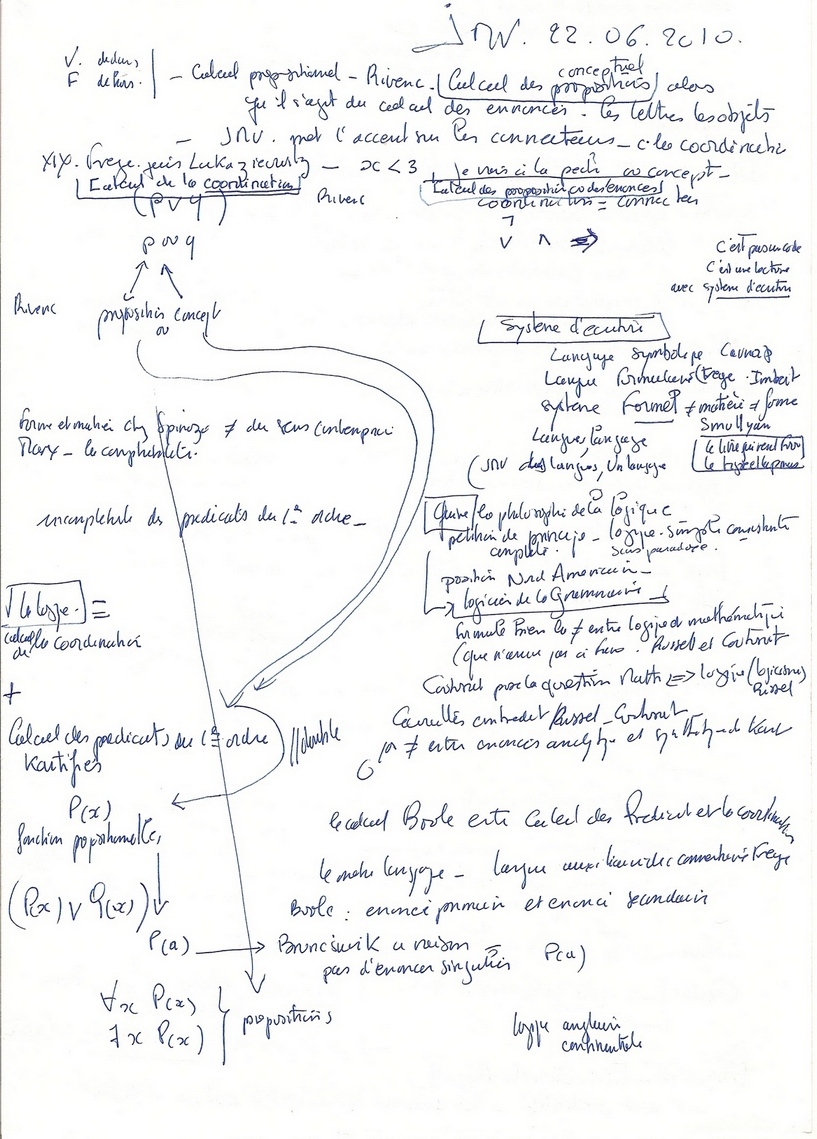 JNV. 22.06.2010.
V. dedans
F dehors.
– Calcul propositionnel – Rivenc. Calcul des propositions alors
conceptuel
qu'il s'agit du calcul des énoncés. les lettres les objets
– JNV. met l'accent sur les connecteurs – c. les coordinati
XIX. Frege. puis – x < 3 je vais à la pech ou concept –
Calcul de la coordination Rivenc Calcul des propositions ou des énoncés
(p ∨ q) coordination = connecteur
¬
p ou q ∨ ∧ ⇒
C'est pas un code
C'est une lecture
avec système d'écriture
Rivenc proposition concept
ou
Système d'écriture
Langage symbolique Carnap
Langue formulaire (Frege. Imbert
système Formel ≠ matière ≠ forme
Smullyan
Langue, langage
(JNV des langues, Un langage
le livre qui rend fou
forme et matière chez Spinoza ≠ du sens contemporai
Marx –
incomplétude des prédicats du 1er ordre –
Quine / la philosophie de la logique
pétition de principe – logique. simple consistante
complète. sans paradoxe.
position Nord Américain –
logicien de la Grammaire
la logique. ≡
calcul de la coordination
formule bien la ≠ entre logique mathématique
(que n'avais pas . Russel et Couturat
Couturat pose la question Math ⇔ logique (logicisme)
Russel
+
Cavaillès contredit Russel – Couturat
Calcul des prédicats du 1er ordre // double
≠ entre énoncés analytique et synthétique de Kant
P(x)
fonction propositionnelle,
le calcul Boole entre Calcul des Prédicat et la coordination
(P(x) ∨ Q(x))
langage – langue auxiliaire des connecteurs Frege
Boole : énoncé primaire et énoncé secondaire
P(a) → Brunschvik a raison = P(a)
pas d'énoncés singuliers
∀x P(x)
∃x P(x)
propositions
logique anglaise
continentale